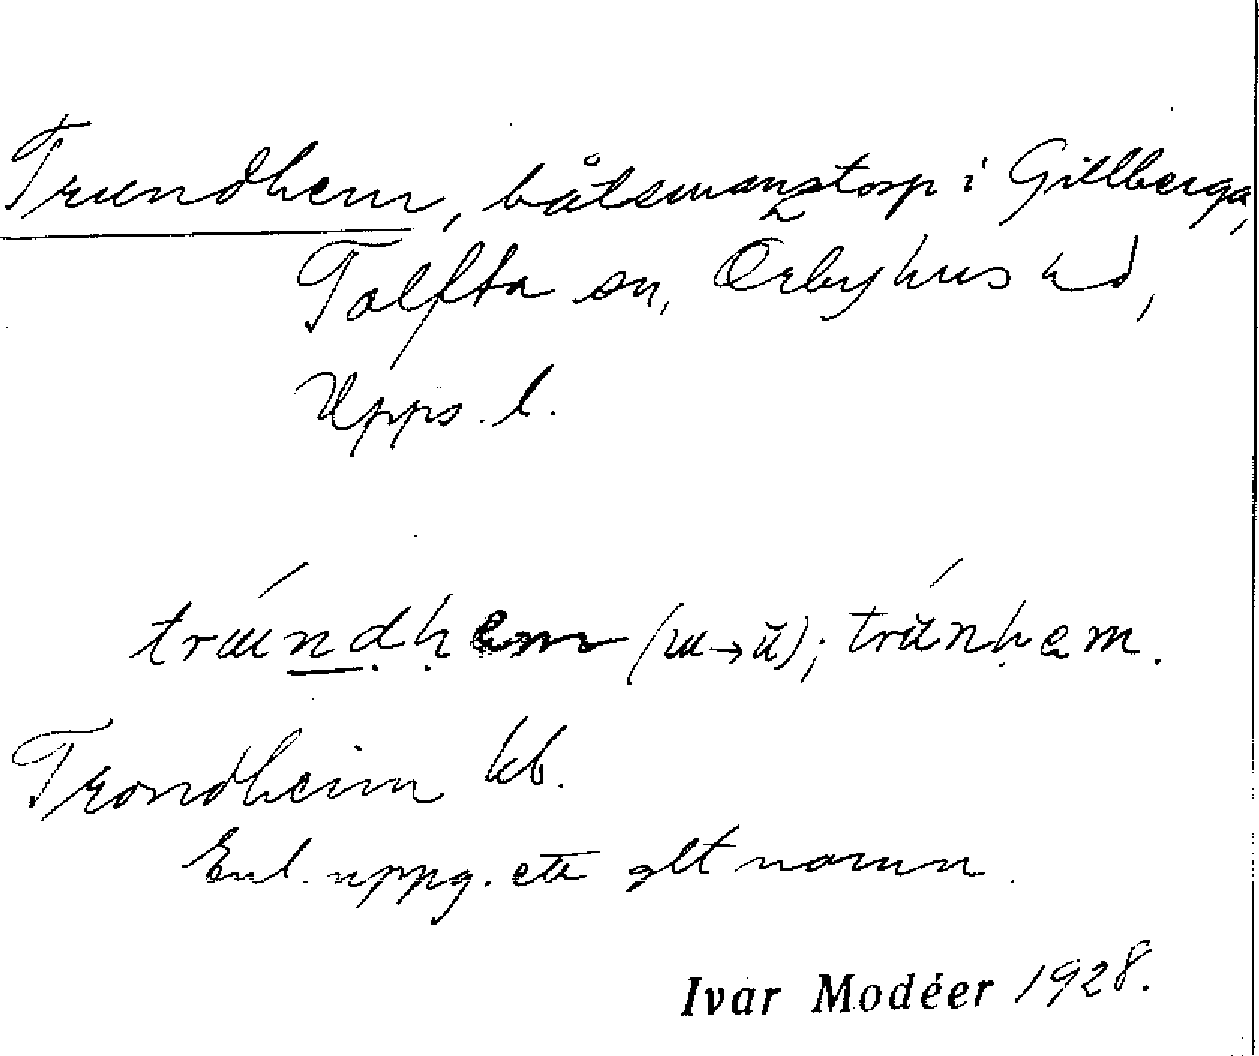 Trundhem, båtsmanstorp i Gillberga,
Tolfta sn, Örbyhus hd,
Upps. l.
trúndhem (u→ŭ); trúnhem.
Trondheim kb.
Enl. uppg. ett glt namn.
Ivar Modéer 1928.